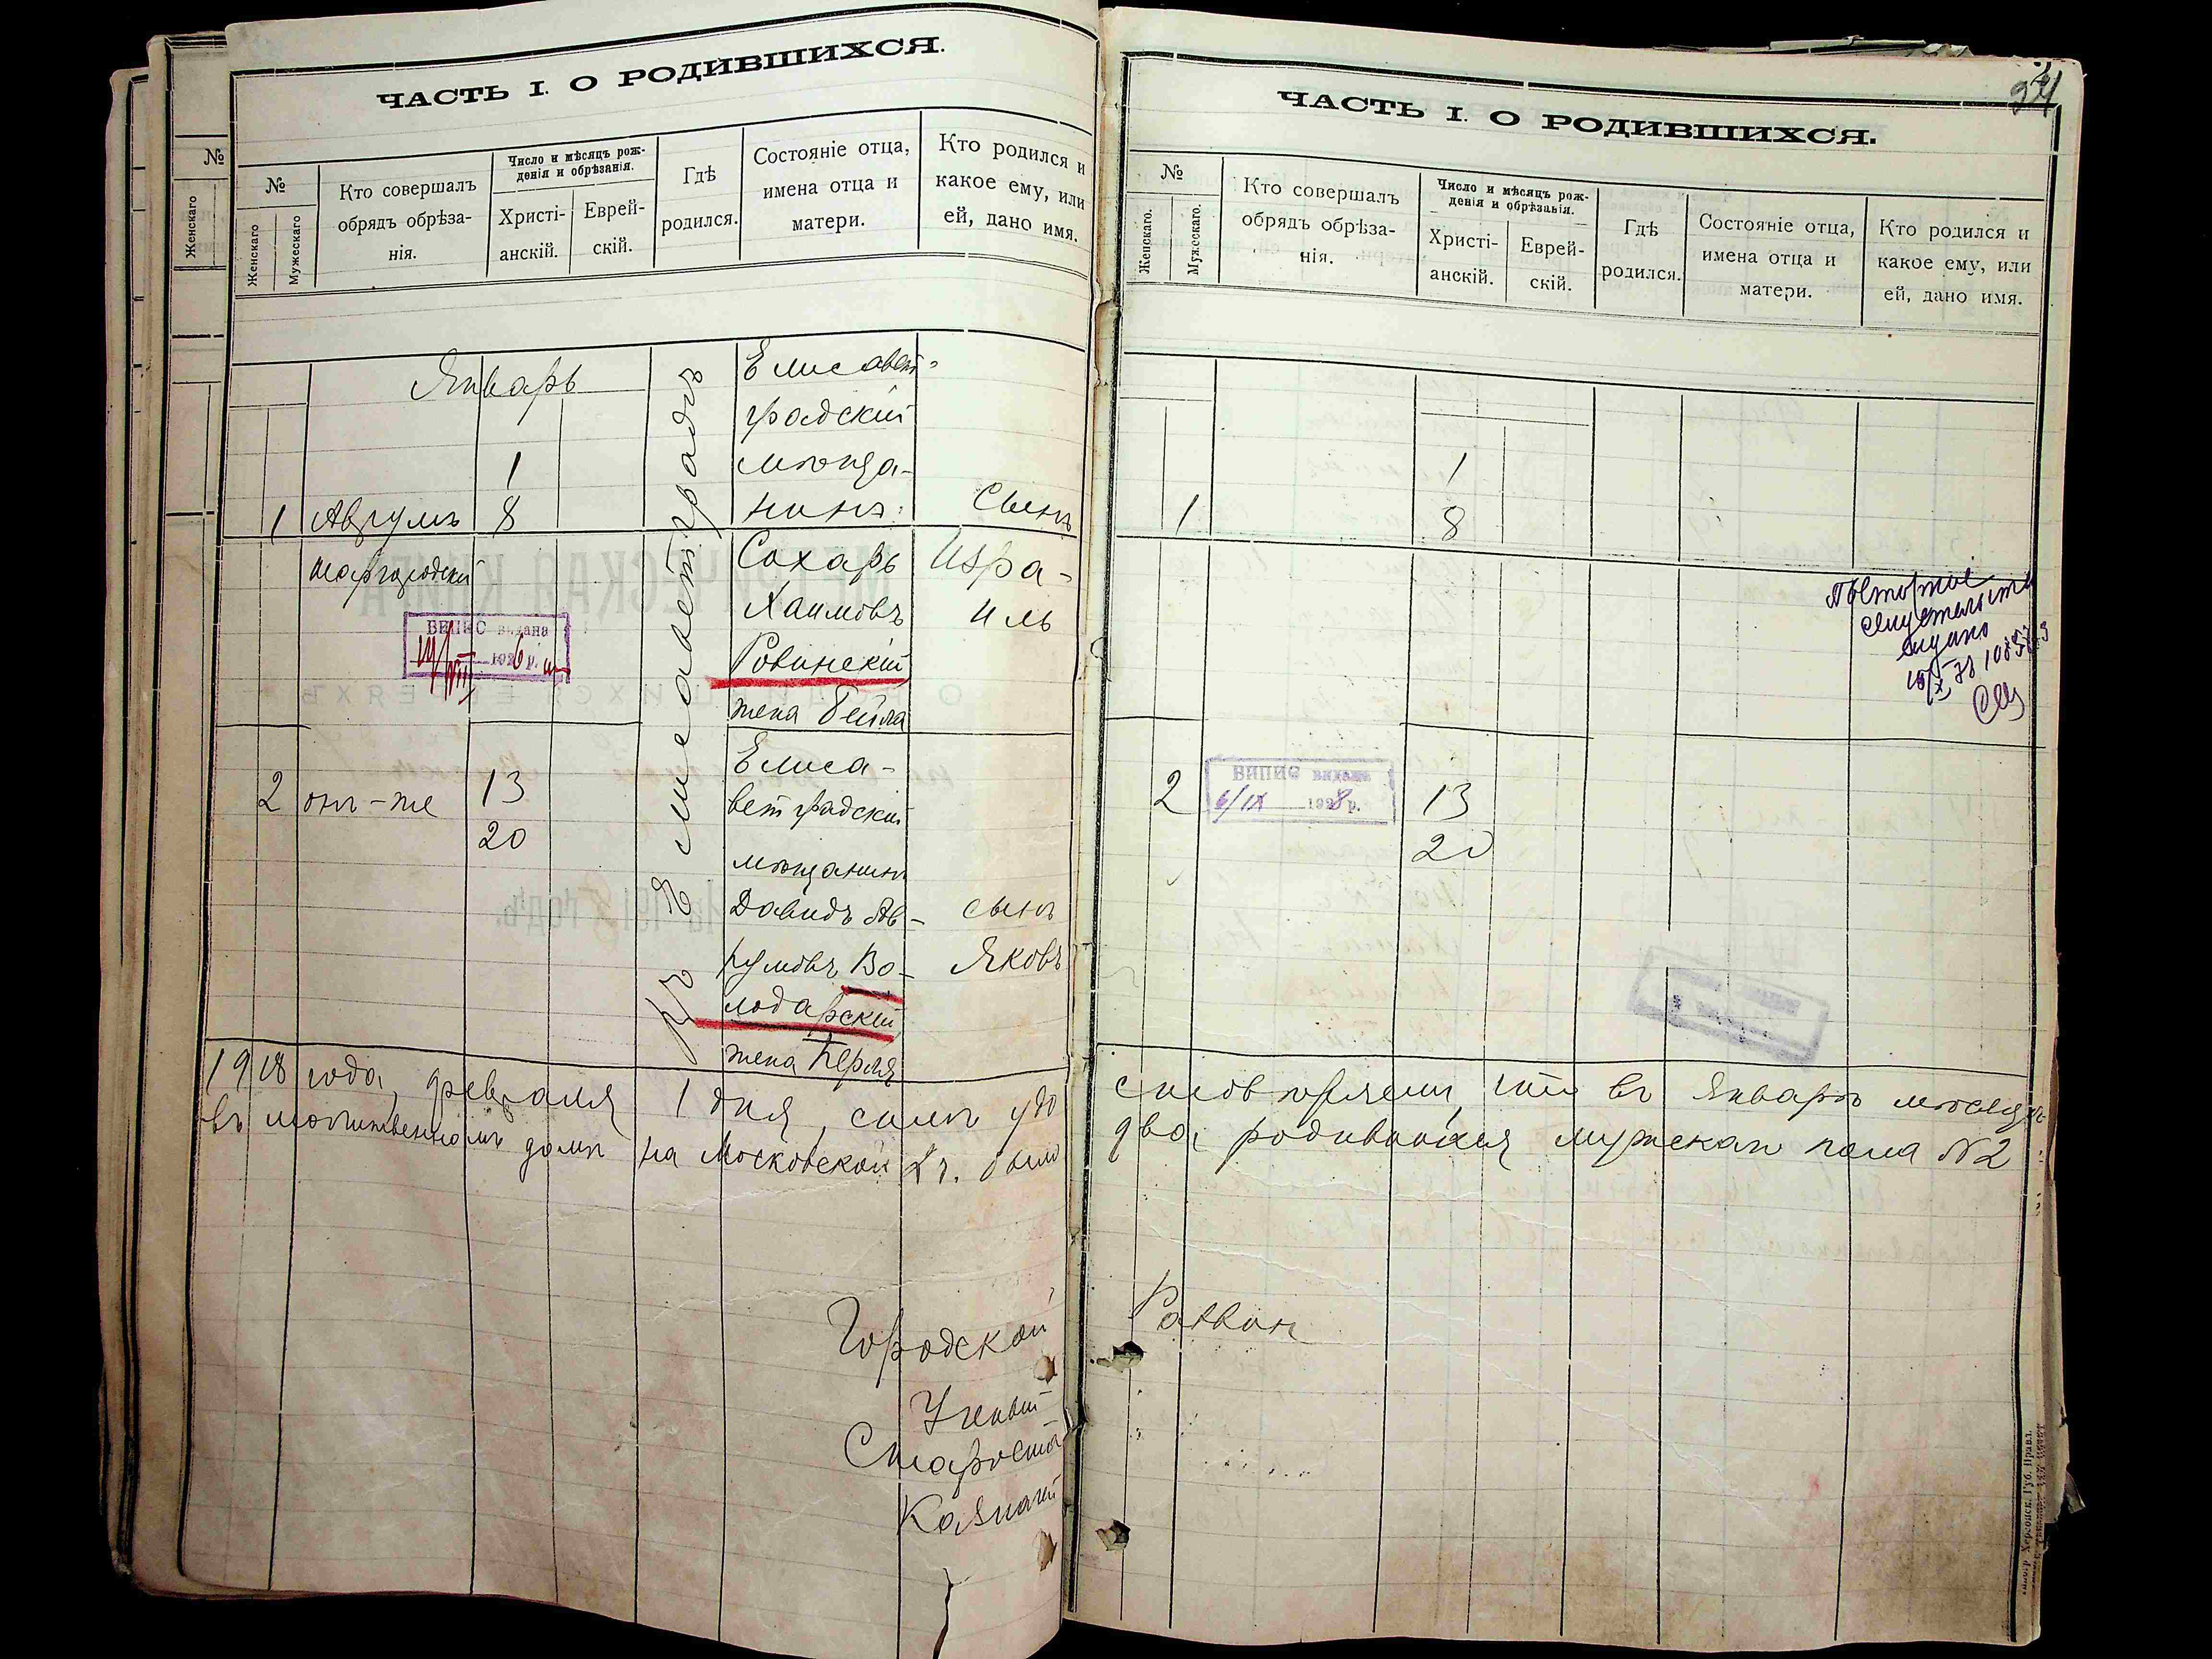 ЧАСТЬ I. О РОДИВШИХСЯ.
№
Женскаго
№
Женскаго
Мужескаго
Кто совершалъ
обрядъ обрѣза-
нія.
Число и мѣсяцъ рож-
денія и обрѣзанія.
Христі-
анскій.
Еврей-
скій.
Гдѣ
родился.
Состояніе отца,
имена отца и
матери.
Кто родился и
какое ему, или
ей, дано имя.
Январь
1
1
8
Аврумъ
Шаргородскій
ВИПИС видана
192 р.
въ г. Елисаветградѣ
Елисавет=
градскій
мѣща-
нинъ
Сахаръ
Хаимовъ
Ровинскій
жена Бейла
Сынъ
Изра-
иль
2
онъ-же
13
20
Елиса-
ветградскій
мѣщанинъ
Давидъ Ав-
румовъ Во-
лодарскій
жена Перля
сынъ
Яковъ
1918 года, февраля 1 дня, симъ удо
въ молитвенномъ домѣ на Московской ул. было
Городской
Ученый
Староста
Казначей
24
ЧАСТЬ I. О РОДИВШИХСЯ.
№
Женскаго.
Мужескаго.
Кто совершалъ
обрядъ обрѣза-
нія.
Число и мѣсяцъ рож-
денія и обрѣзанія.
Христі-
анскій.
Еврей-
скій.
Гдѣ
родился.
Состояніе отца,
имена отца и
матери.
Кто родился и
какое ему, или
ей, дано имя.
1
1
8
Повторное
выдано
2
ВИПИС видана
6/IX 1928 р.
13
20
стовѣряемъ, что въ Январѣ мѣсяцѣ
два родившихся мужскаго пола №2
Раввинъ
Херсонск. Губ. Правл.